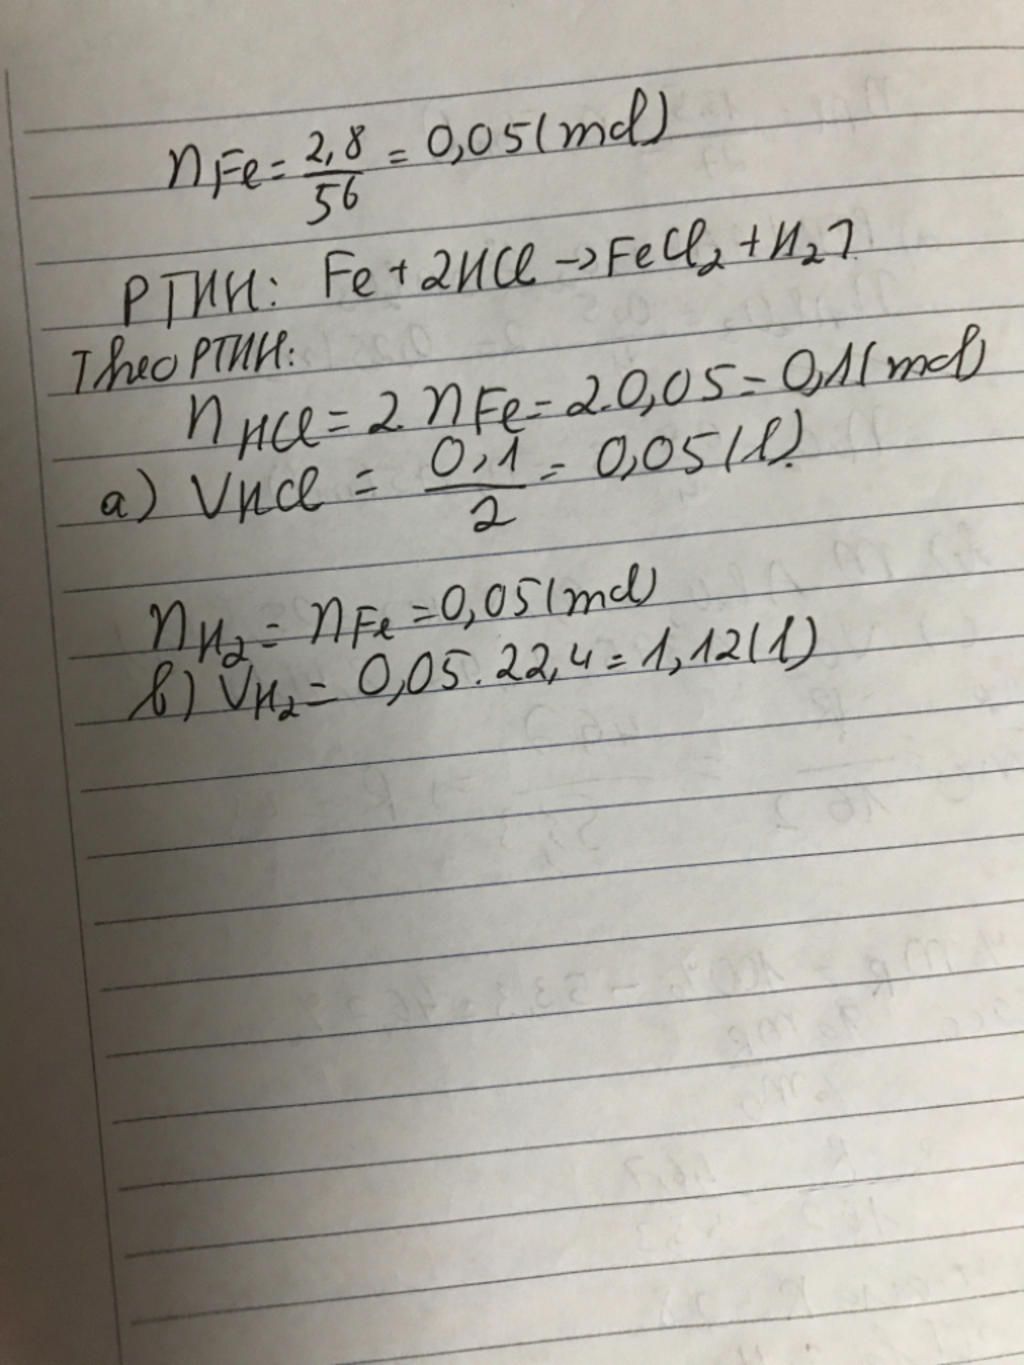 nFe = 2,8/56 = 0,05 (mol)
PTHH: Fe + 2HCl → FeCl₂ + H₂↑
Theo PTHH:
nHCl = 2.nFe = 2.0,05 = 0,1 (mol)
a) VHCl = 0,1/2 = 0,05 (l).
nH₂ = nFe = 0,05 (mol)
b) VH₂ = 0,05.22,4 = 1,12 (l)